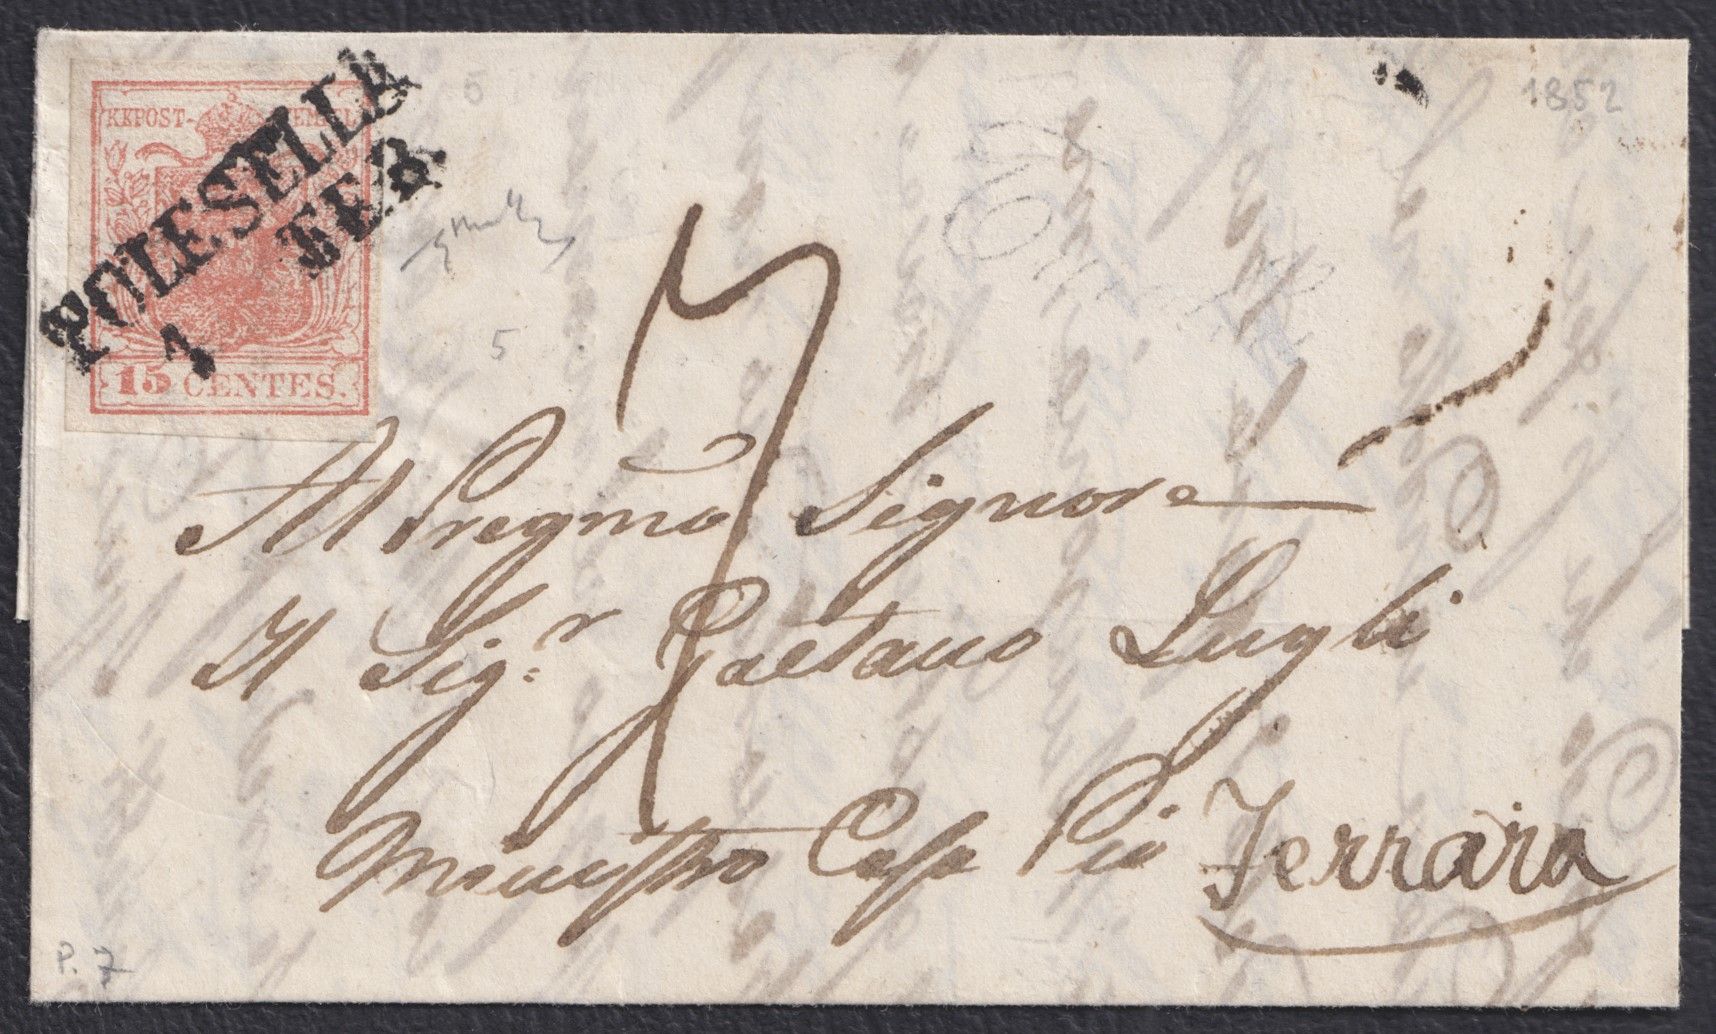 KKPOST-STEMPEL
15 CENTES.
POLESELLA
1 FEB.
1852
5
7
Al Pregmo Signore
Il Sig.r Gaetano Lugli
Ministro Casa Pio Ferrara
P. 7